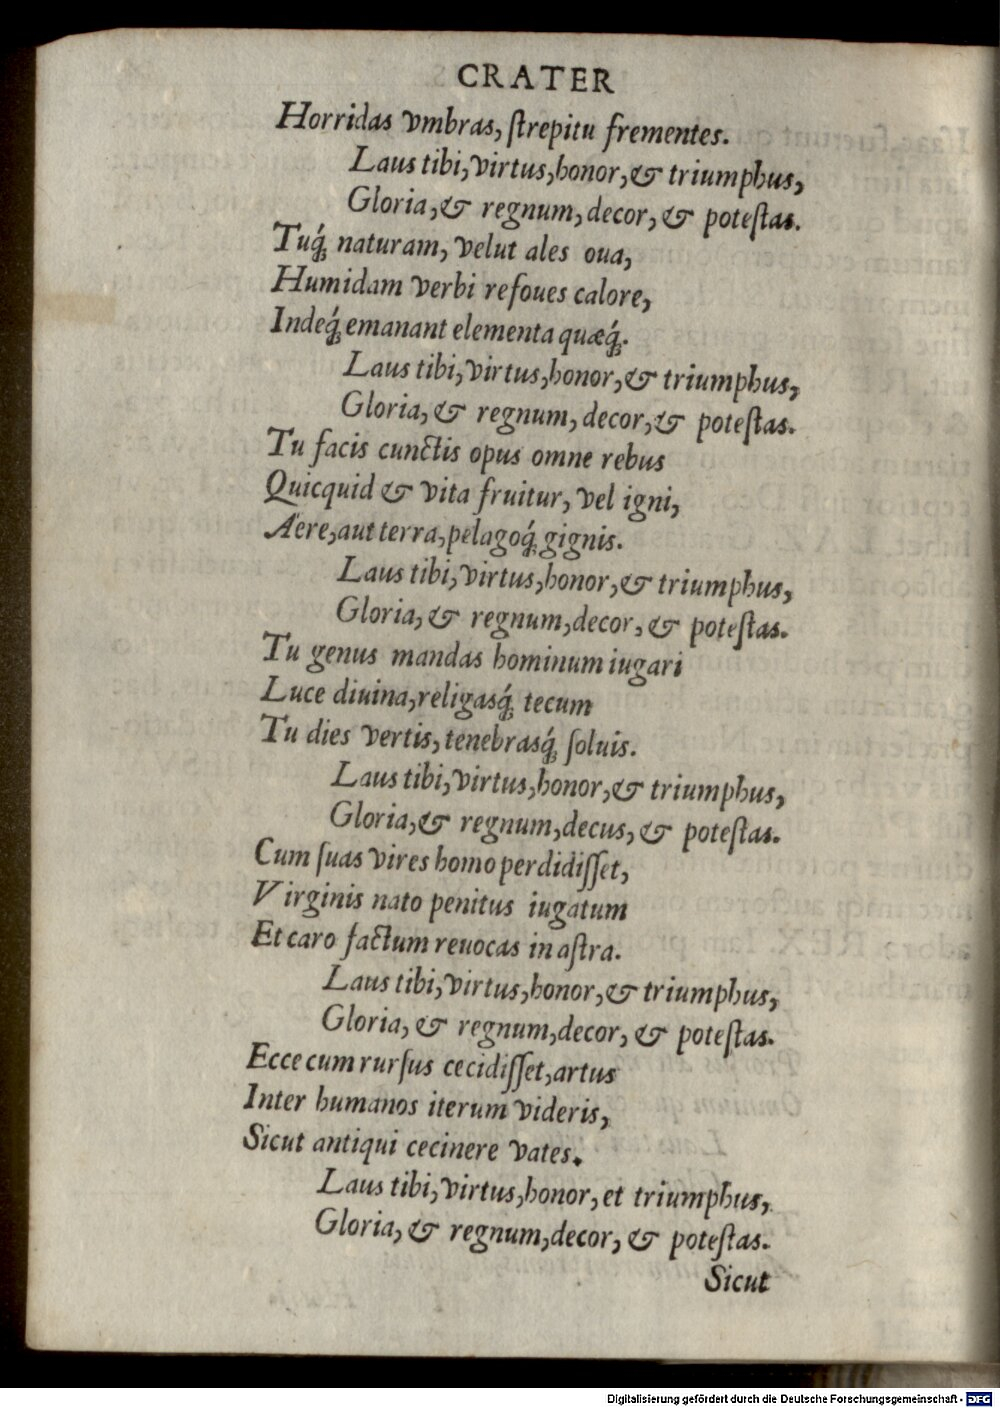 CRATER
Horridas vmbras, ſtrepitu frementes.
Laus tibi, virtus, honor, & triumphus,
Gloria, & regnum, decor, & poteſtas.
Tuq́; naturam, velut ales oua,
Humidam verbi refoues calore,
Indeq́; emanant elementa quæq́;.
Laus tibi, virtus, honor, & triumphus,
Gloria, & regnum, decor, & poteſtas.
Tu facis cunctis opus omne rebus
Quicquid & vita fruitur, vel igni,
Aëre, aut terra, pelagoq́; gignis.
Laus tibi, virtus, honor, & triumphus,
Gloria, & regnum, decor, & poteſtas.
Tu genus mandas hominum iugari
Luce diuina, religasq́; tecum
Tu dies vertis, tenebrasq́; ſoluis.
Laus tibi, virtus, honor, & triumphus,
Gloria, & regnum, decus, & poteſtas.
Cum ſuas vires homo perdidiſſet,
Virginis nato penitus iugatum
Et caro factum reuocas in aſtra.
Laus tibi, virtus, honor, & triumphus,
Gloria, & regnum, decor, & poteſtas.
Ecce cum rurſus cecidiſſet, artus
Inter humanos iterum videris,
Sicut antiqui cecinere vates.
Laus tibi, virtus, honor, et triumphus,
Gloria, & regnum, decor, & poteſtas.
Sicut
Digitalisierung gefördert durch die Deutsche Forschungsgemeinschaft - DFG